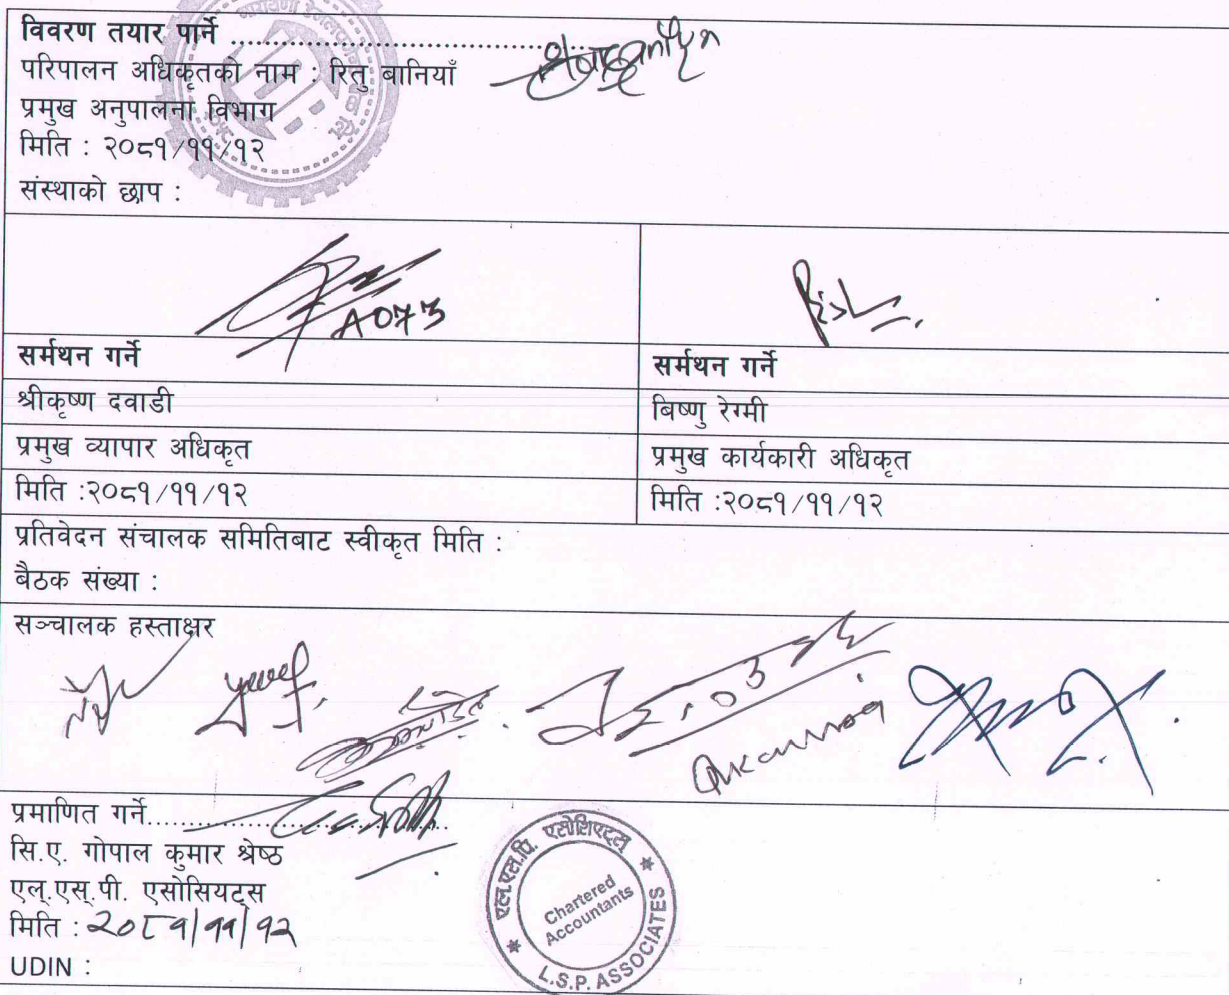 विवरण तयार पार्ने ........................................
परिपालन अधिकृतको नाम : रितु बानियाँ
प्रमुख अनुपालना विभाग
मिति : २०८१/११/१२
संस्थाको छाप :
A073
सर्मथन गर्ने
सर्मथन गर्ने
श्रीकृष्ण दवाडी
बिष्णु रेग्मी
प्रमुख व्यापार अधिकृत
प्रमुख कार्यकारी अधिकृत
मिति :२०८१/११/१२
मिति :२०८१/११/१२
प्रतिवेदन संचालक समितिबाट स्वीकृत मिति :
बैठक संख्या :
सञ्चालक हस्ताक्षर
प्रमाणित गर्ने........................................
सि.ए. गोपाल कुमार श्रेष्ठ
एल्.एस्.पी. एसोसियट्स
मिति : २०८१/११/१२
UDIN :
एल.एस.पि. एसोशिएट्स
Chartered
Accountants
L.S.P. ASSOCIATES